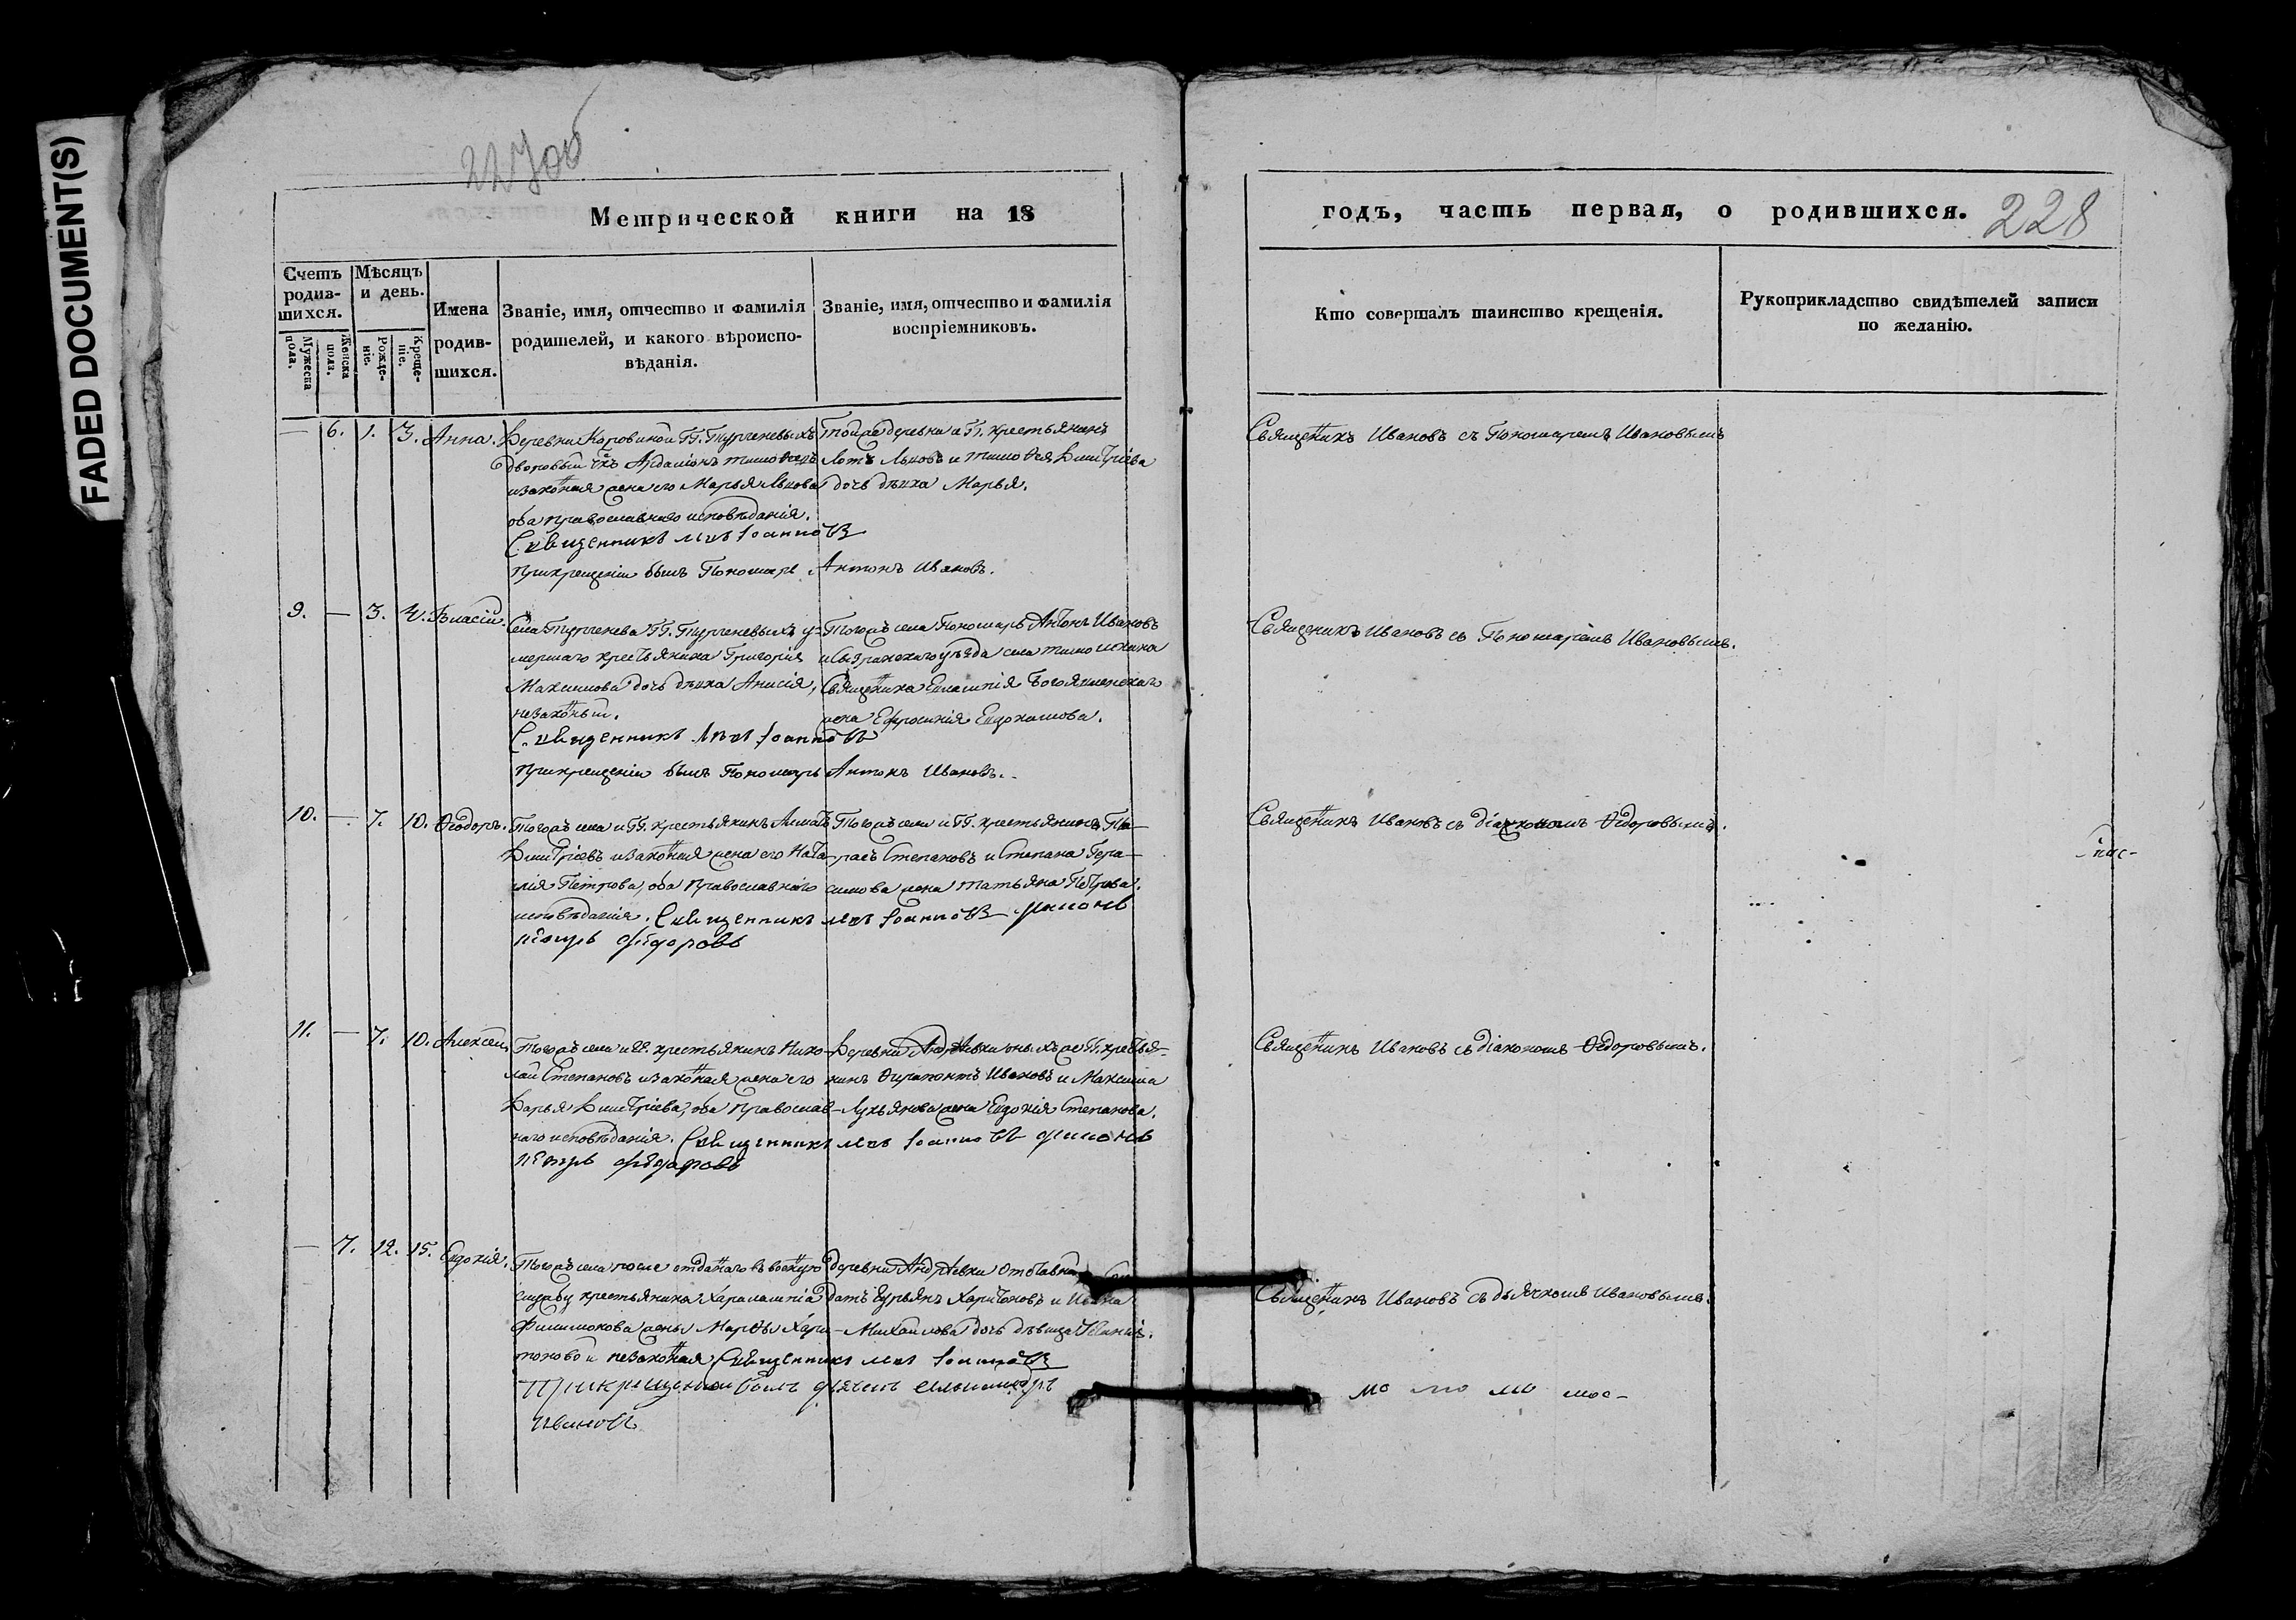 FADED DOCUMENT(S)
227об
Метрической книги на 18
годъ, часть первая, о родившихся.
228
Счетъ родив-
шихся.
Мѣсяцъ
и день.
Мужеска пола.
Женска пола.
Рожде-
ніе.
Креще-
ніе.
Имена
родив-
шихся.
Званіе, имя, отчество и фамилія
родителей, и какого вѣроиспо-
вѣданія.
Званіе, имя, отчество и фамилія
воспріемниковъ.
Кто совершалъ таинство крещенія.
Рукоприкладство свидѣтелей записи
по желанію.
— 6. 1. 3. Анна.
Деревни Коровиной ГГ. Тургеневыхъ
дворовый Ардаліонъ Тимоѳеевъ
и законная жена его Марья Львова
оба православнаго исповѣданія.
Священникъ Левъ Іоанновъ
При крещеніи былъ Пономарь Антонъ Ивановъ.
Тойже деревни и ГГ. крестьянинъ
Левъ Львовъ и Тимоѳея Димитріева
дочь дѣвка Марья.
Священникъ Ивановъ съ Пономаремъ Ивановымъ
9. — 3. 4. Власій.
Села Тургенева ГГ. Тургеневыхъ у-
мершаго крестьянина Григорія
Максимова дочь дѣвка Анисія,
незаконный.
Священникъ Левъ Іоанновъ
При крещеніи былъ Пономарь Антонъ Ивановъ.
Тогожъ села Пономарь Антонъ Ивановъ
и Сызранскаго уѣзда села Тимошкина
Священника Евлампія Богоявленскаго
жена Ефросинія Евдокимова.
Священникъ Ивановъ съ Пономаремъ Ивановымъ.
10. — 7. 10. Ѳеодоръ.
Тогожъ села и ГГ. крестьянинъ
Димитріевъ и законная жена его Ната-
лія Петрова, оба Православнаго
исповѣданія. Священникъ Левъ Іоанновъ дияконъ
Петръ Фёдоровъ
Тогожъ села и ГГ. крестьянинъ Та-
расъ Степановъ и Степана Гера-
симова жена Татьяна Петрова.
Священникъ Ивановъ съ діакономъ Ѳедоровымъ.
11. — 7. 10. Алексей.
Тогожъ села и ГГ. крестьянинъ Нико-
лай Степановъ и законная жена его
Дарья Димитріева, оба Православ-
наго исповѣданія. Священникъ Левъ Іоанновъ дияконъ
Петръ Фёдоровъ
Деревни Андреевки оныхъ же ГГ. крестья-
нинъ Ѳерапонтъ Ивановъ и Максима
Лукьянова жена Евдокія Степанова.
Священникъ Ивановъ съ діакономъ Ѳедоровымъ.
— 7. 12. 15. Евдокія.
Тогожъ села после отданнаго въ военную
службу крестьянина Харалампія
Филимонова жены Марѳы Хари-
тоновой незаконная Священникъ Левъ Іоанновъ
При крещении былъ дьячекъ
Ивановъ
деревни Андреевки отставный
датъ Гурьянъ Харитоновъ и Ивана
Михайлова дочь дѣвица
Священникъ Ивановъ съ дьячкомъ Ивановымъ.